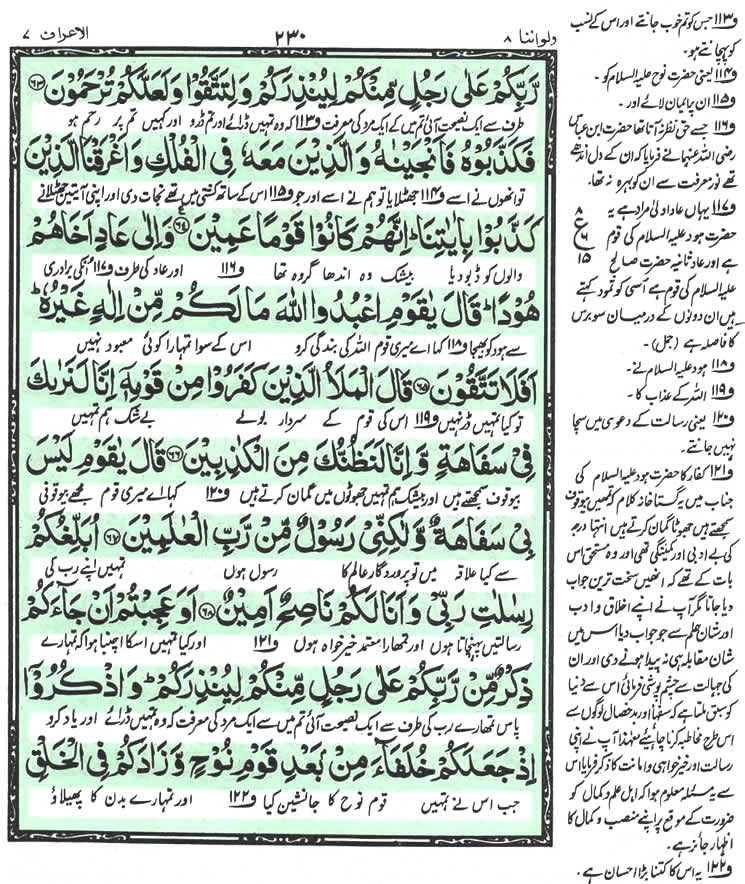 الاعراف ٧
٢٣٠
ولواننا ٨
رَّبِّكُمْ عَلٰى رَجُلٍ مِّنْكُمْ لِيُنْذِرَكُمْ وَلِتَتَّقُوْا وَلَعَلَّكُمْ تُرْحَمُوْنَ ﴿٦٣﴾
طرف سے ایک نصیحت آئی تم میں کے ایک مرد کی معرفت و۱۱۳ کہ وہ تمہیں ڈرائے اور تم ڈرو اور کہیں تم پر رحم ہو
فَكَذَّبُوْهُ فَاَنْجَيْنٰهُ وَالَّذِيْنَ مَعَهٗ فِى الْفُلْكِ وَاَغْرَقْنَا الَّذِيْنَ
تو انھوں نے اسے و۱۱۴ جھٹلایا تو ہم نے اسے اور جو و۱۱۵ اس کے ساتھ کشتی میں تھے نجات دی اور اپنی آیتیں جھٹلانے
كَذَّبُوْا بِاٰيٰتِنَا ؕ اِنَّهُمْ كَانُوْا قَوْمًا عَمِيْنَ ﴿٦٤﴾ وَاِلٰى عَادٍ اَخَاهُمْ
والوں کو ڈبو دیا بیشک وہ اندھا گروہ تھا و۱۱۶ اور عاد کی طرف و۱۱۷ ان کی برادری
هُوْدًا ؕ قَالَ يٰقَوْمِ اعْبُدُوا اللّٰهَ مَا لَكُمْ مِّنْ اِلٰهٍ غَيْرُهٗ ؕ
سے ہود کو بھیجا و۱۱۸ کہا اے میری قوم اللہ کی بندگی کرو اس کے سوا تمہارا کوئی معبود نہیں
اَفَلَا تَتَّقُوْنَ ﴿٦٥﴾ قَالَ الْمَلَاُ الَّذِيْنَ كَفَرُوْا مِنْ قَوْمِهٖۤ اِنَّا لَنَرٰىكَ
تو کیا تمہیں ڈر نہیں و۱۱۹ اس کی قوم کے سردار بولے بے شک ہم تمہیں
فِىْ سَفَاهَةٍ وَّاِنَّا لَنَظُنُّكَ مِنَ الْكٰذِبِيْنَ ﴿٦٦﴾ قَالَ يٰقَوْمِ لَيْسَ
بیوقوف سمجھتے ہیں اور بیشک ہم تمہیں جھوٹوں میں گمان کرتے ہیں و۱۲۰ کہا اے میری قوم مجھے بیوقوفی
بِىْ سَفَاهَةٌ وَّلٰكِنِّىْ رَسُوْلٌ مِّنْ رَّبِّ الْعٰلَمِيْنَ ﴿٦٧﴾ اُبَلِّغُكُمْ
سے کیا علاقہ میں تو پروردگار عالم کا رسول ہوں تمہیں اپنے رب کی
رِسٰلٰتِ رَبِّىْ وَاَنَا لَكُمْ نَاصِحٌ اَمِيْنٌ ﴿٦٨﴾ اَوَعَجِبْتُمْ اَنْ جَآءَكُمْ
رسالتیں پہنچاتا ہوں اور تمھارا معتمد خیر خواہ ہوں و۱۲۱ اور کیا تمہیں اس کا اچنبا ہوا کہ تمہارے
ذِكْرٌ مِّنْ رَّبِّكُمْ عَلٰى رَجُلٍ مِّنْكُمْ لِيُنْذِرَكُمْ ؕ وَاذْكُرُوْۤا
پاس تمھارے رب کی طرف سے ایک نصیحت آئی تم میں سے ایک مرد کی معرفت کہ وہ تمہیں ڈرائے اور یاد کرو
اِذْ جَعَلَكُمْ خُلَفَآءَ مِنْۢ بَعْدِ قَوْمِ نُوْحٍ وَّزَادَكُمْ فِى الْخَلْقِ
جب اس نے تمہیں قوم نوح کا جانشین کیا و۱۲۲ اور تمہارے بدن کا پھیلاؤ
و۱۱۳ جس کو تم خوب جانتے اور اس کے نسب
کو پہچانتے ہو۔
و۱۱۴ یعنی حضرت نوح علیہ السلام کو۔
و۱۱۵ ان پر ایمان لائے اور۔
و۱۱۶ جسے حق نظر نہ آتا تھا حضرت ابن عباس
رضی اللہ عنہما نے فرمایا کہ ان کے دل اندھے
تھے نور معرفت سے ان کو بہرہ نہ تھا۔
و۱۱۷ یہاں عاد اولٰی مراد ہے یہ
حضرت ہود علیہ السلام کی قوم
ہے اور عاد ثانیہ حضرت صالح
علیہ السلام کی قوم ہے اسی کو ثمود کہتے
ہیں ان دونوں کے درمیان سو برس
کا فاصلہ ہے (جمل)۔
٨
ع
٦
١٥
و۱۱۸ ہود علیہ السلام نے۔
و۱۱۹ اللہ کے عذاب کا۔
و۱۲۰ یعنی رسالت کے دعوی میں سچا
نہیں جانتے۔
و۱۲۱ کفار کا حضرت ہود علیہ السلام کی
جناب میں یہ گستاخانہ کلام کہ تمھیں بیوقوف
سمجھتے ہیں جھوٹا گمان کرتے ہیں انتہا درجہ
کی بے ادبی اور کمینگی تھی اور وہ مستحق اس
بات کے تھے کہ انھیں سخت ترین جواب
دیا جاتا مگر آپ نے اپنے اخلاق و ادب
اور شان حلم سے جو جواب دیا اس میں
شان مقابلہ ہی نہ پیدا ہونے دی اور ان
کی جہالت سے چشم پوشی فرمائی اس سے دنیا
کو سبق ملتا ہے کہ سفہا اور بدخصال لوگوں سے
اس طرح مخاطبہ کرنا چاہیے معہذا آپ نے اپنی
رسالت اور خیر خواہی و امانت کا ذکر فرمایا اس
سے یہ مسئلہ معلوم ہوا کہ اہل علم و کمال کو
ضرورت کے موقع پر اپنے منصب و کمال کا
اظہار جائز ہے۔
و۱۲۲ یہ اس کا کتنا بڑا احسان ہے۔